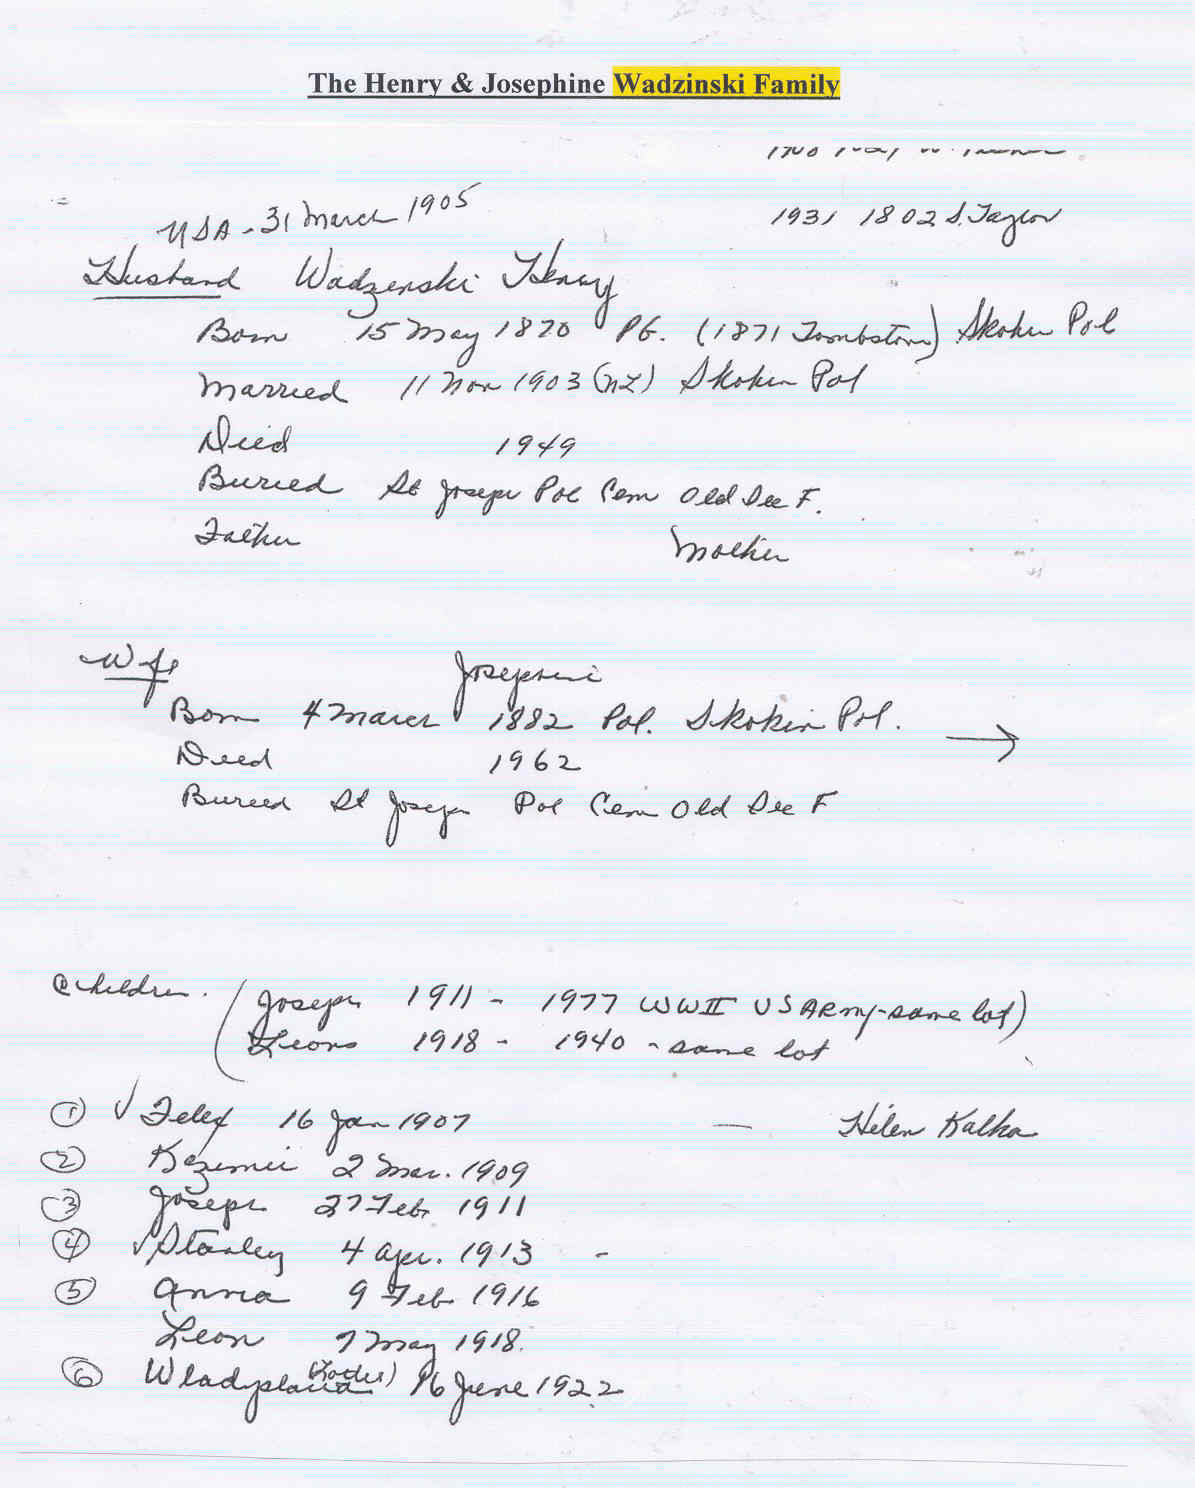 The Henry & Josephine Wadzinski Family
USA - 31 March 1905
1931 1802 S. Taylor
Husband Wadzenski Henry
Born 15 May 1870 PG. (1871 Tombstone) Skokin Pol
Married 11 Nov 1903 (NZ) Skokin Pol
Died 1949
Buried St Joseph Pol Cem Old Sec F.
Father Mother
Wife Josephine
Born 4 March 1882 Pol. Skokin Pol. →
Died 1962
Buried St Joseph Pol Cem Old Sec F
Children. (Joseph 1911 - 1977 WWII US ARmy - same lot)
Leons 1918 - 1940 - same lot
① ✓ Felex 16 Jan 1907 — Helen Kalka
② Kazimir 2 Mar. 1909
③ Joseph 27 Feb 1911
④ ✓ Stanley 4 Apr. 1913 -
⑤ Anna 9 Feb 1916
Leon 7 May 1918.
⑥ Wladyslaua 16 June 1922